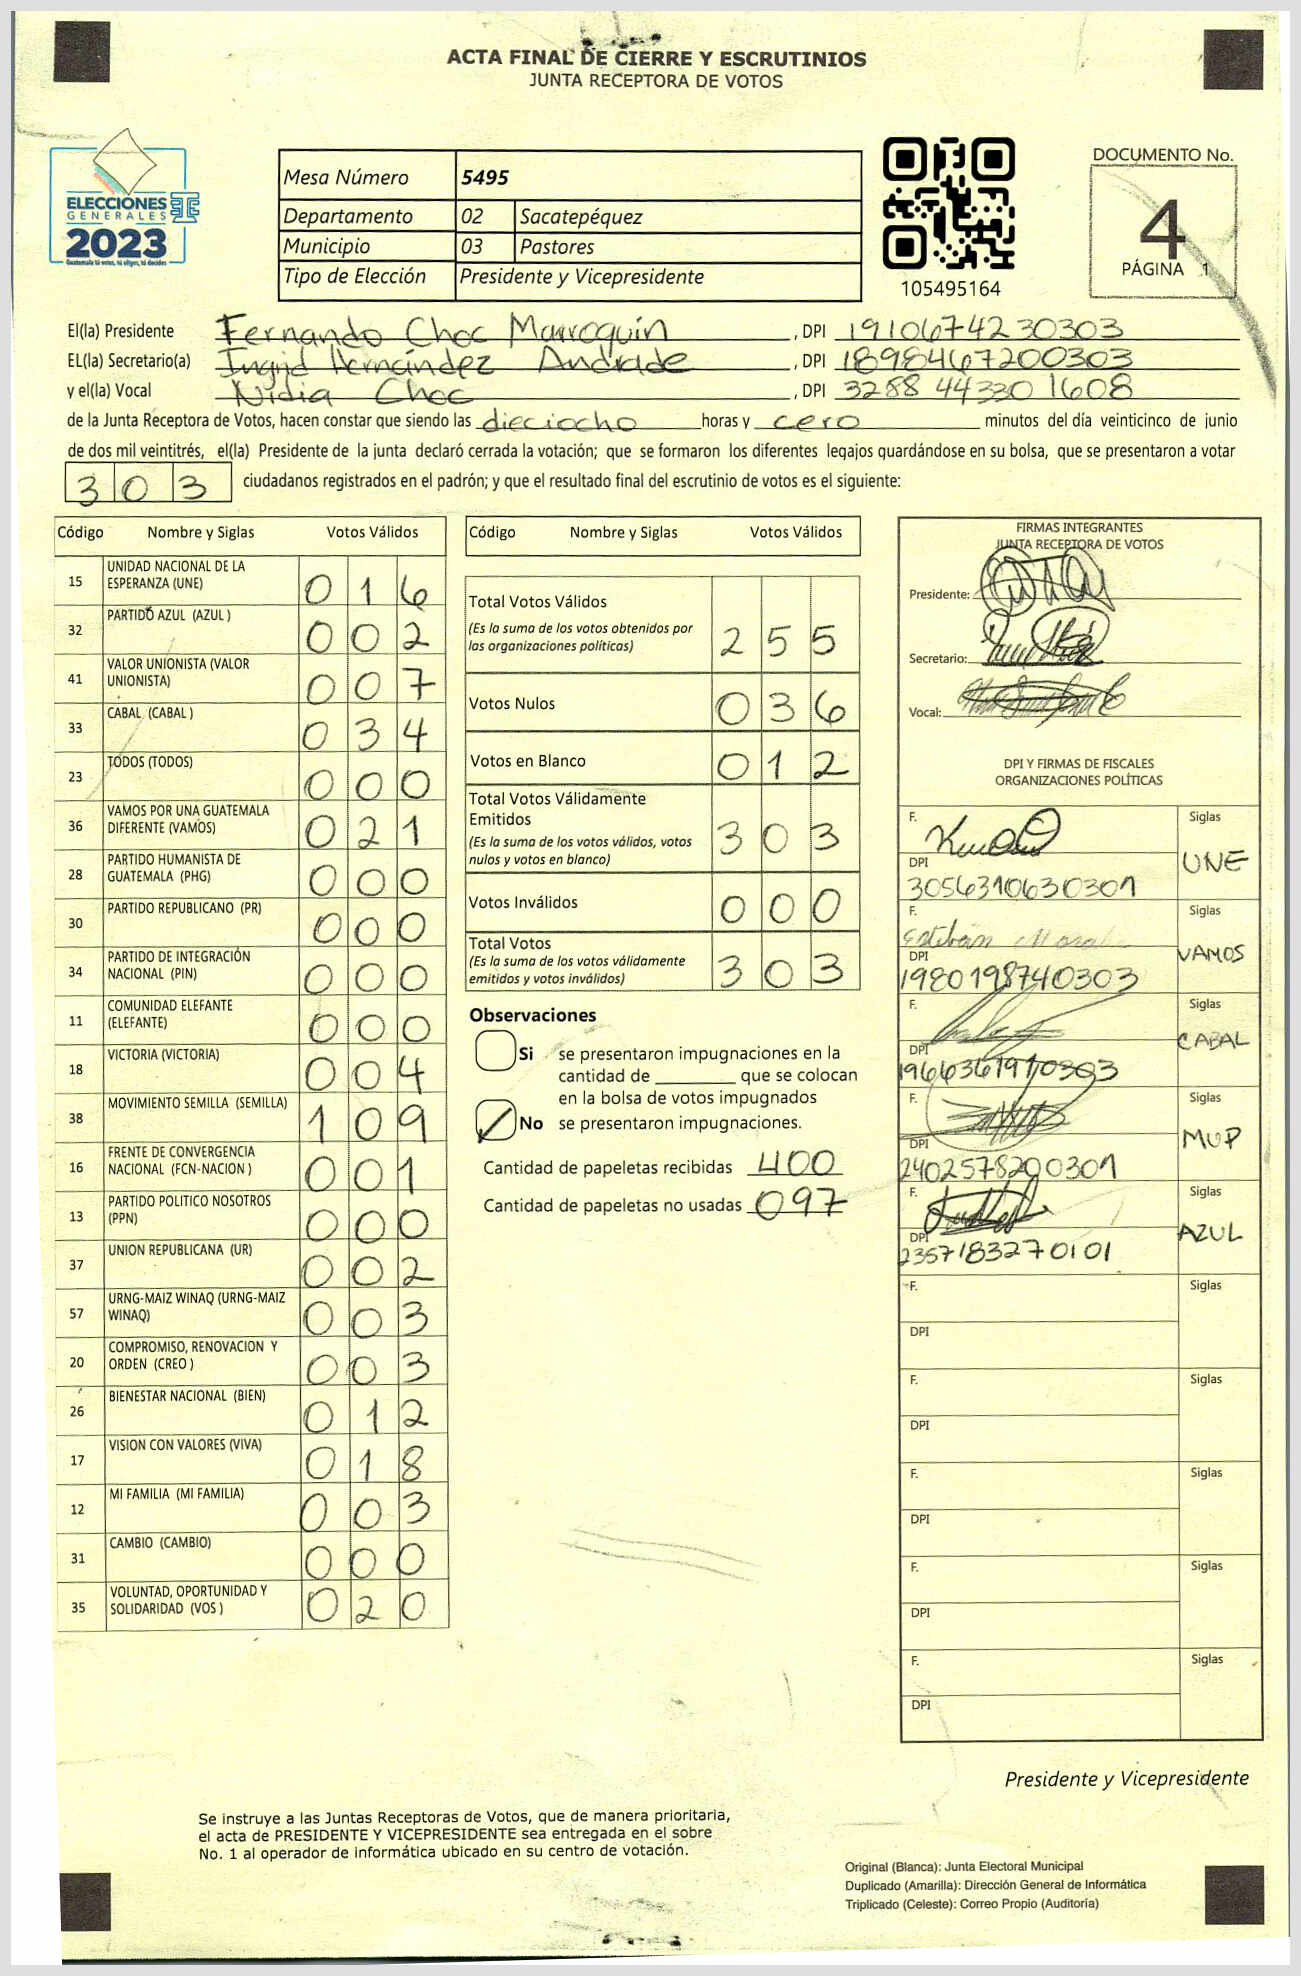 ACTA FINAL DE CIERRE Y ESCRUTINIOS
JUNTA RECEPTORA DE VOTOS
ELECCIONES
GENERALES
2023
Guatemala tú votas, tú eliges, tú decides
Mesa Número 5495
Departamento 02 Sacatepéquez
Municipio 03 Pastores
Tipo de Elección Presidente y Vicepresidente
105495164
DOCUMENTO No.
4
PÁGINA 1
El(la) Presidente Fernando Choc Marroquín , DPI 1910674230303
EL(la) Secretario(a) Ingrid Hernández Andrade , DPI 1898467200303
y el(la) Vocal Nidia Choc , DPI 3288 44330 1608
de la Junta Receptora de Votos, hacen constar que siendo las dieciocho horas y cero minutos del día veinticinco de junio
de dos mil veintitrés, el(la) Presidente de la junta declaró cerrada la votación; que se formaron los diferentes legajos guardándose en su bolsa, que se presentaron a votar
303 ciudadanos registrados en el padrón; y que el resultado final del escrutinio de votos es el siguiente:
Código Nombre y Siglas Votos Válidos
15 UNIDAD NACIONAL DE LA
ESPERANZA (UNE) 016
32 PARTIDO AZUL (AZUL ) 002
41 VALOR UNIONISTA (VALOR
UNIONISTA) 007
33 CABAL (CABAL ) 034
23 TODOS (TODOS) 000
36 VAMOS POR UNA GUATEMALA
DIFERENTE (VAMOS) 021
28 PARTIDO HUMANISTA DE
GUATEMALA (PHG) 000
30 PARTIDO REPUBLICANO (PR) 000
34 PARTIDO DE INTEGRACIÓN
NACIONAL (PIN) 000
11 COMUNIDAD ELEFANTE
(ELEFANTE) 000
18 VICTORIA (VICTORIA) 004
38 MOVIMIENTO SEMILLA (SEMILLA) 109
16 FRENTE DE CONVERGENCIA
NACIONAL (FCN-NACION ) 001
13 PARTIDO POLITICO NOSOTROS
(PPN) 000
37 UNION REPUBLICANA (UR) 002
57 URNG-MAIZ WINAQ (URNG-MAIZ
WINAQ) 003
20 COMPROMISO, RENOVACION Y
ORDEN (CREO ) 003
26 BIENESTAR NACIONAL (BIEN) 012
17 VISION CON VALORES (VIVA) 018
12 MI FAMILIA (MI FAMILIA) 003
31 CAMBIO (CAMBIO) 000
35 VOLUNTAD, OPORTUNIDAD Y
SOLIDARIDAD (VOS ) 020
Código Nombre y Siglas Votos Válidos
Total Votos Válidos
(Es la suma de los votos obtenidos por
las organizaciones políticas) 255
Votos Nulos 036
Votos en Blanco 012
Total Votos Válidamente
Emitidos
(Es la suma de los votos válidos, votos
nulos y votos en blanco) 303
Votos Inválidos 000
Total Votos
(Es la suma de los votos válidamente
emitidos y votos inválidos) 303
Observaciones
Si se presentaron impugnaciones en la
cantidad de ________ que se colocan
en la bolsa de votos impugnados
No se presentaron impugnaciones.
Cantidad de papeletas recibidas 400
Cantidad de papeletas no usadas 097
FIRMAS INTEGRANTES
JUNTA RECEPTORA DE VOTOS
Presidente:
Secretario:
Vocal:
DPI Y FIRMAS DE FISCALES
ORGANIZACIONES POLÍTICAS
F. Siglas
UNE
DPI
3056310630301
F. Siglas
Esteban
VAMOS
DPI
1980198740303
F. Siglas
CABAL
DPI
1966361970303
F. Siglas
MUP
DPI
2402578200301
F. Siglas
AZUL
DPI
2357183270101
F. Siglas
DPI
F. Siglas
DPI
F. Siglas
DPI
F. Siglas
DPI
F. Siglas
DPI
Presidente y Vicepresidente
Se instruye a las Juntas Receptoras de Votos, que de manera prioritaria,
el acta de PRESIDENTE Y VICEPRESIDENTE sea entregada en el sobre
No. 1 al operador de informática ubicado en su centro de votación.
Original (Blanca): Junta Electoral Municipal
Duplicado (Amarilla): Dirección General de Informática
Triplicado (Celeste): Correo Propio (Auditoría)